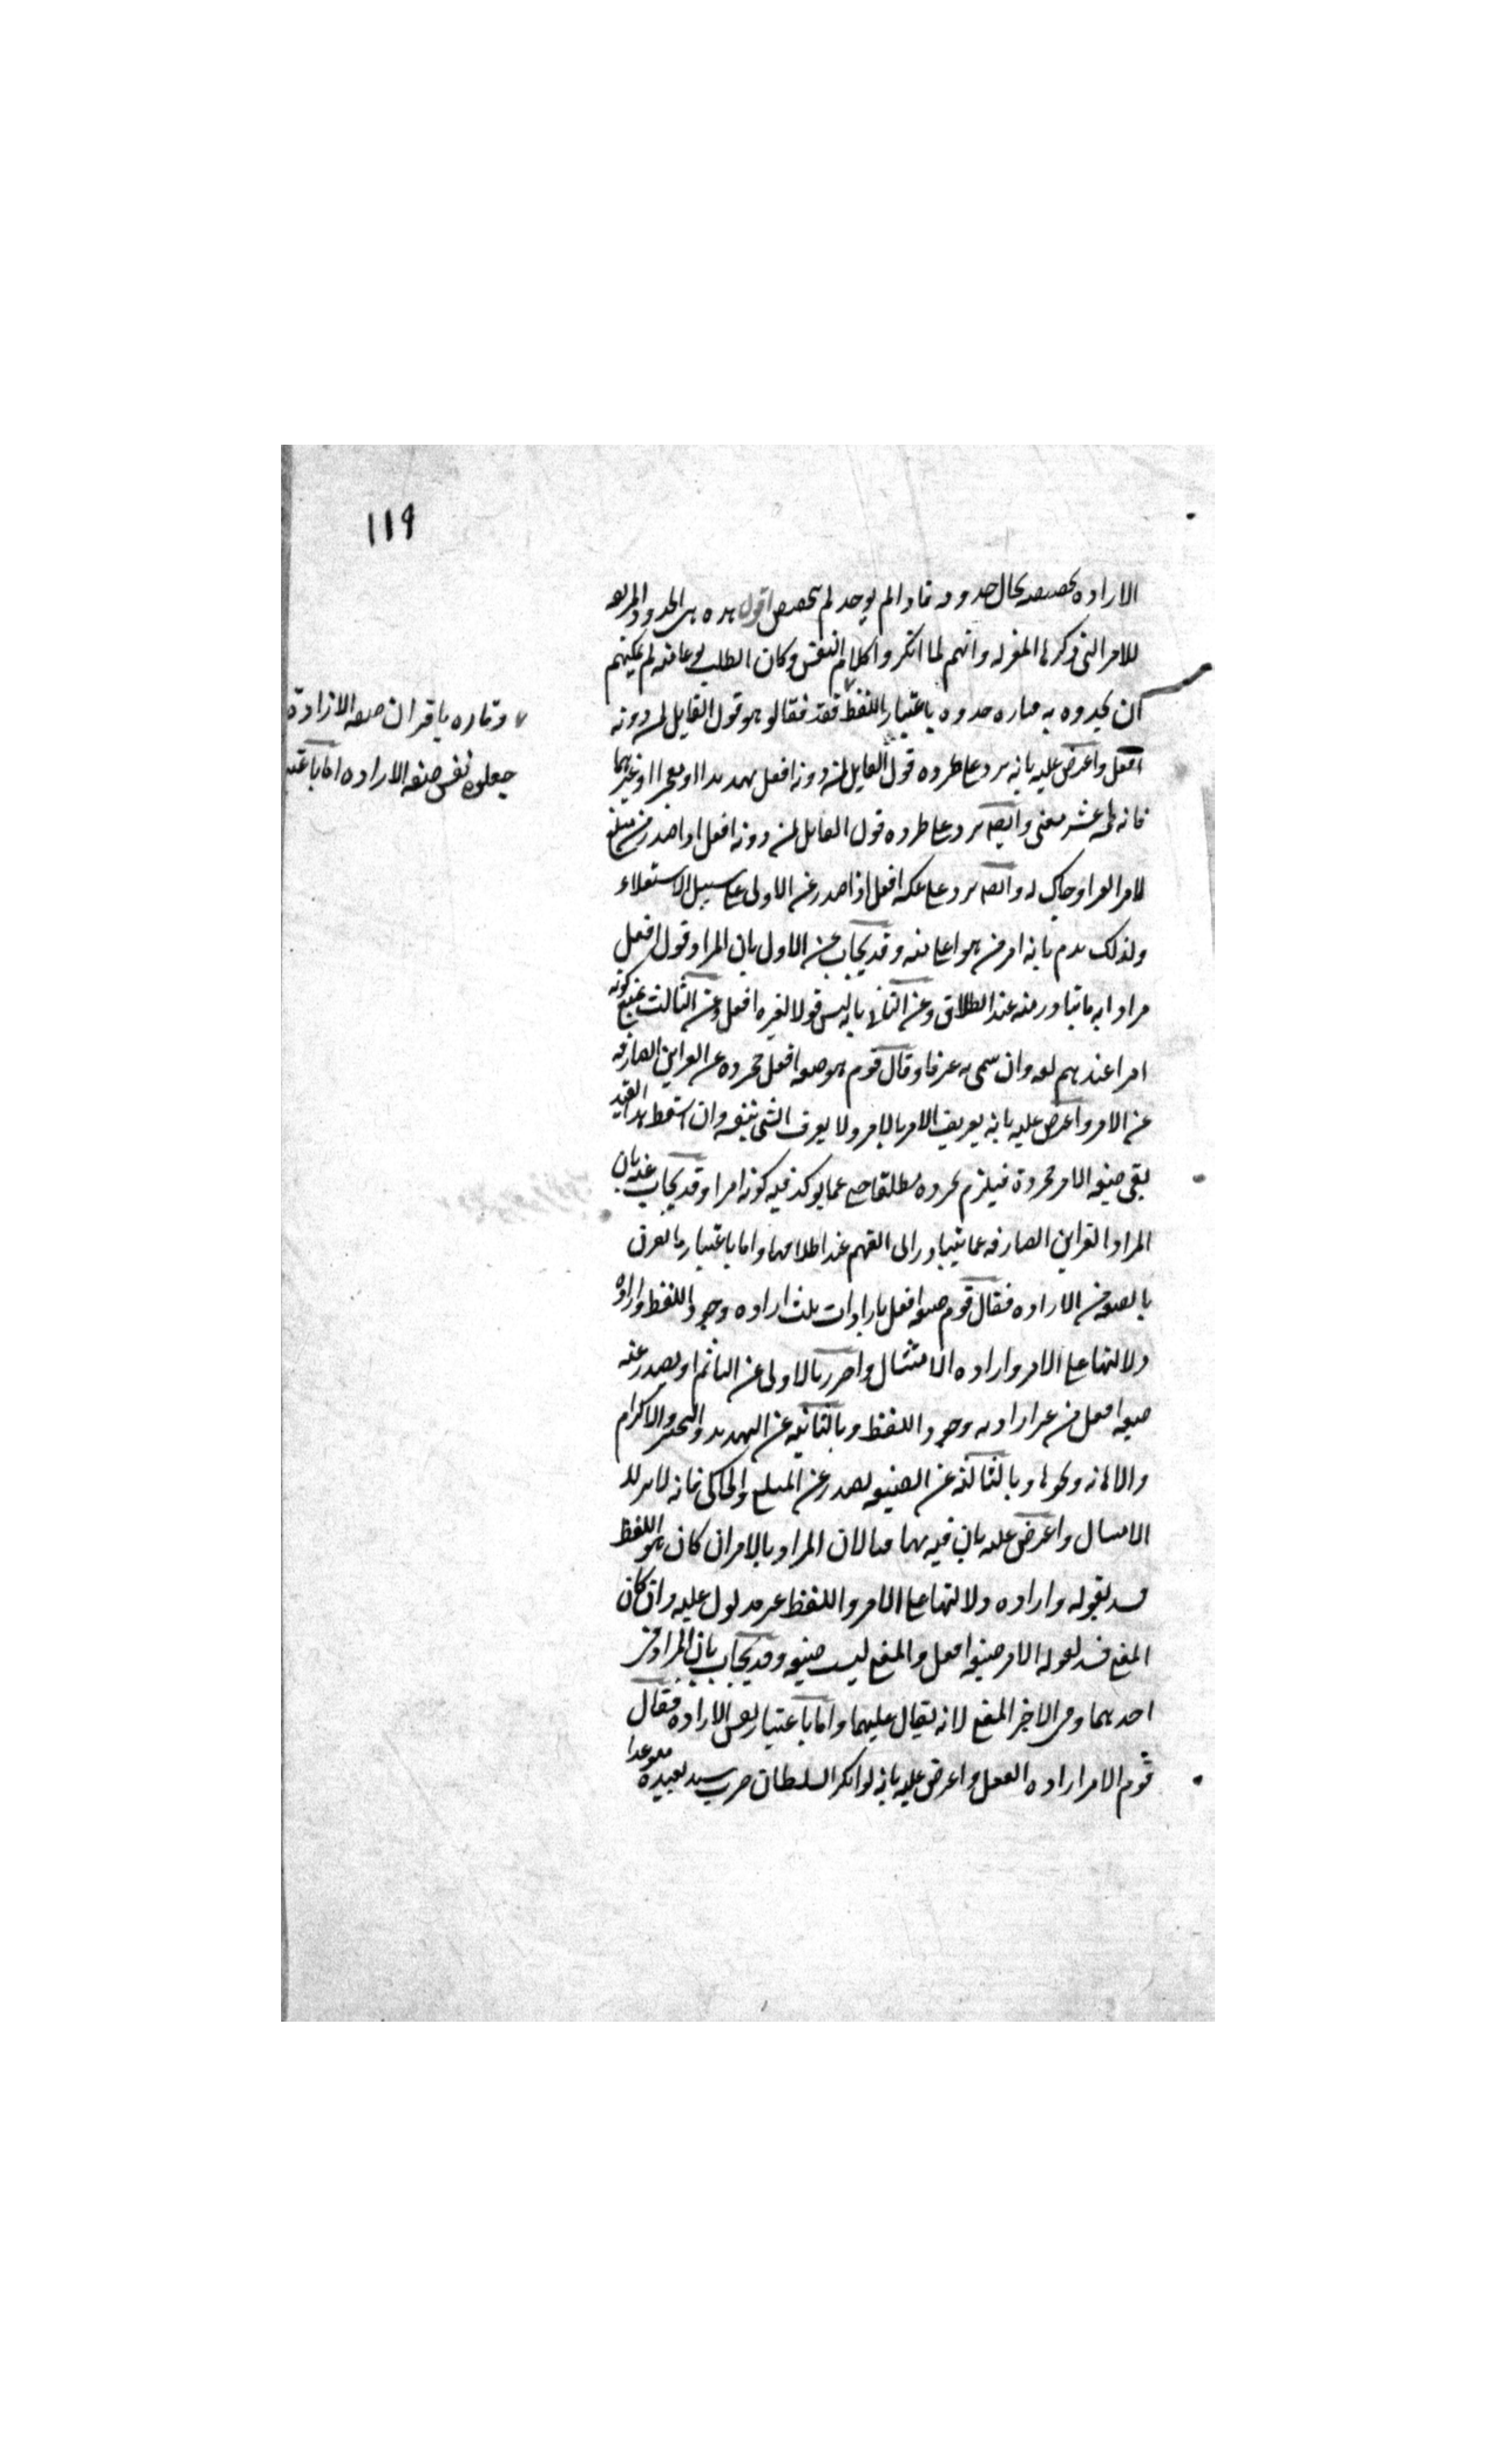 ١١٩
الاراده تخصصه بحال حدوثه فما لم يوجد لم يتخصص اقول هذه هى الحدود المزيفه
للامر التى ذكرها المعتزله وانهم لما انكروا كلام النفس وكان الطلب نوعا منه لم يمكنهم
ان يحدوه به فتاره حدوه باعتبار اللفظ فقد فقالوا هو قول القايل لمن دونه
وتاره باقتران صفه الارادة
جعلوه نفس صفه الاراده اما باعتبار
افعل واعترض عليه بانه يرد على طرده قول القايل لمن دونه افعل تهديدا او تعجيزا او غيرهما
فانه لخمسه عشر معنى وايضا يرد على طرده قول القايل لمن دونه افعل اذا صدر من مبلغ
لامر الغير او حاك له وايضا يرد على عكسه افعل اذا صدر عن الادنى على سبيل الاستعلاء
ولذلك يذم بانه امر من هو اعلى منه وقد يجاب عن الاول بان المراد قول افعل
مرادا به ما يتبادر منه عند الاطلاق وعن الثانى بانه ليس قولا لغيره افعل وعن الثالث بمنع كونه
امرا عندهم لغه وان سمى به عرفا وقال قوم هو صيغه افعل مجرده عن القراين الصارفه
عن الامر واعترض عليه بانه تعريف الامر بالامر ولا يعرف الشى بنفسه وان اسقط هذا القيد
بقى صيغه الامر مجردة فيلزم تجرده مطلقا حتى عما يوكد فيه كونه امرا وقد يجاب عنه بان
المراد القراين الصارفه عما يتبادر الى الفهم عند اطلاقها واما باعتبار ما يقترن
بالصيغه من الاراده فقال قوم صيغه افعل بارادات ثلث اراده وجود اللفظ واراده
دلالتها على الامر واراده الامتثال واحترز بالاولى عن النائم اذ يصدر عنه
صيغه افعل من غير اراده وجود اللفظ وبالثانيه عن التهديد والتخيير والاكرام
والاهانه ونحوها وبالثالثه عن الصيغه تصدر عن المبلغ والحاكى فانه لا يريد
الامتثال واعترض عليه بان فيه تهافتا لان المراد بالامر ان كان هو اللفظ
فسد بقوله واراده دلالتها على الامر واللفظ غير مدلول عليه وان كان
المعنى فسد بقوله الامر صيغه افعل والمعنى ليس صيغه وقد يجاب بان المراد من
احدهما ومن الاخر المعنى لانه يقال عليهما واما باعتبار نفس الاراده فقال
قوم الامر اراده الفعل واعترض عليه بانه لو انكر السلطان ضرب سيد لعبده متوعدا